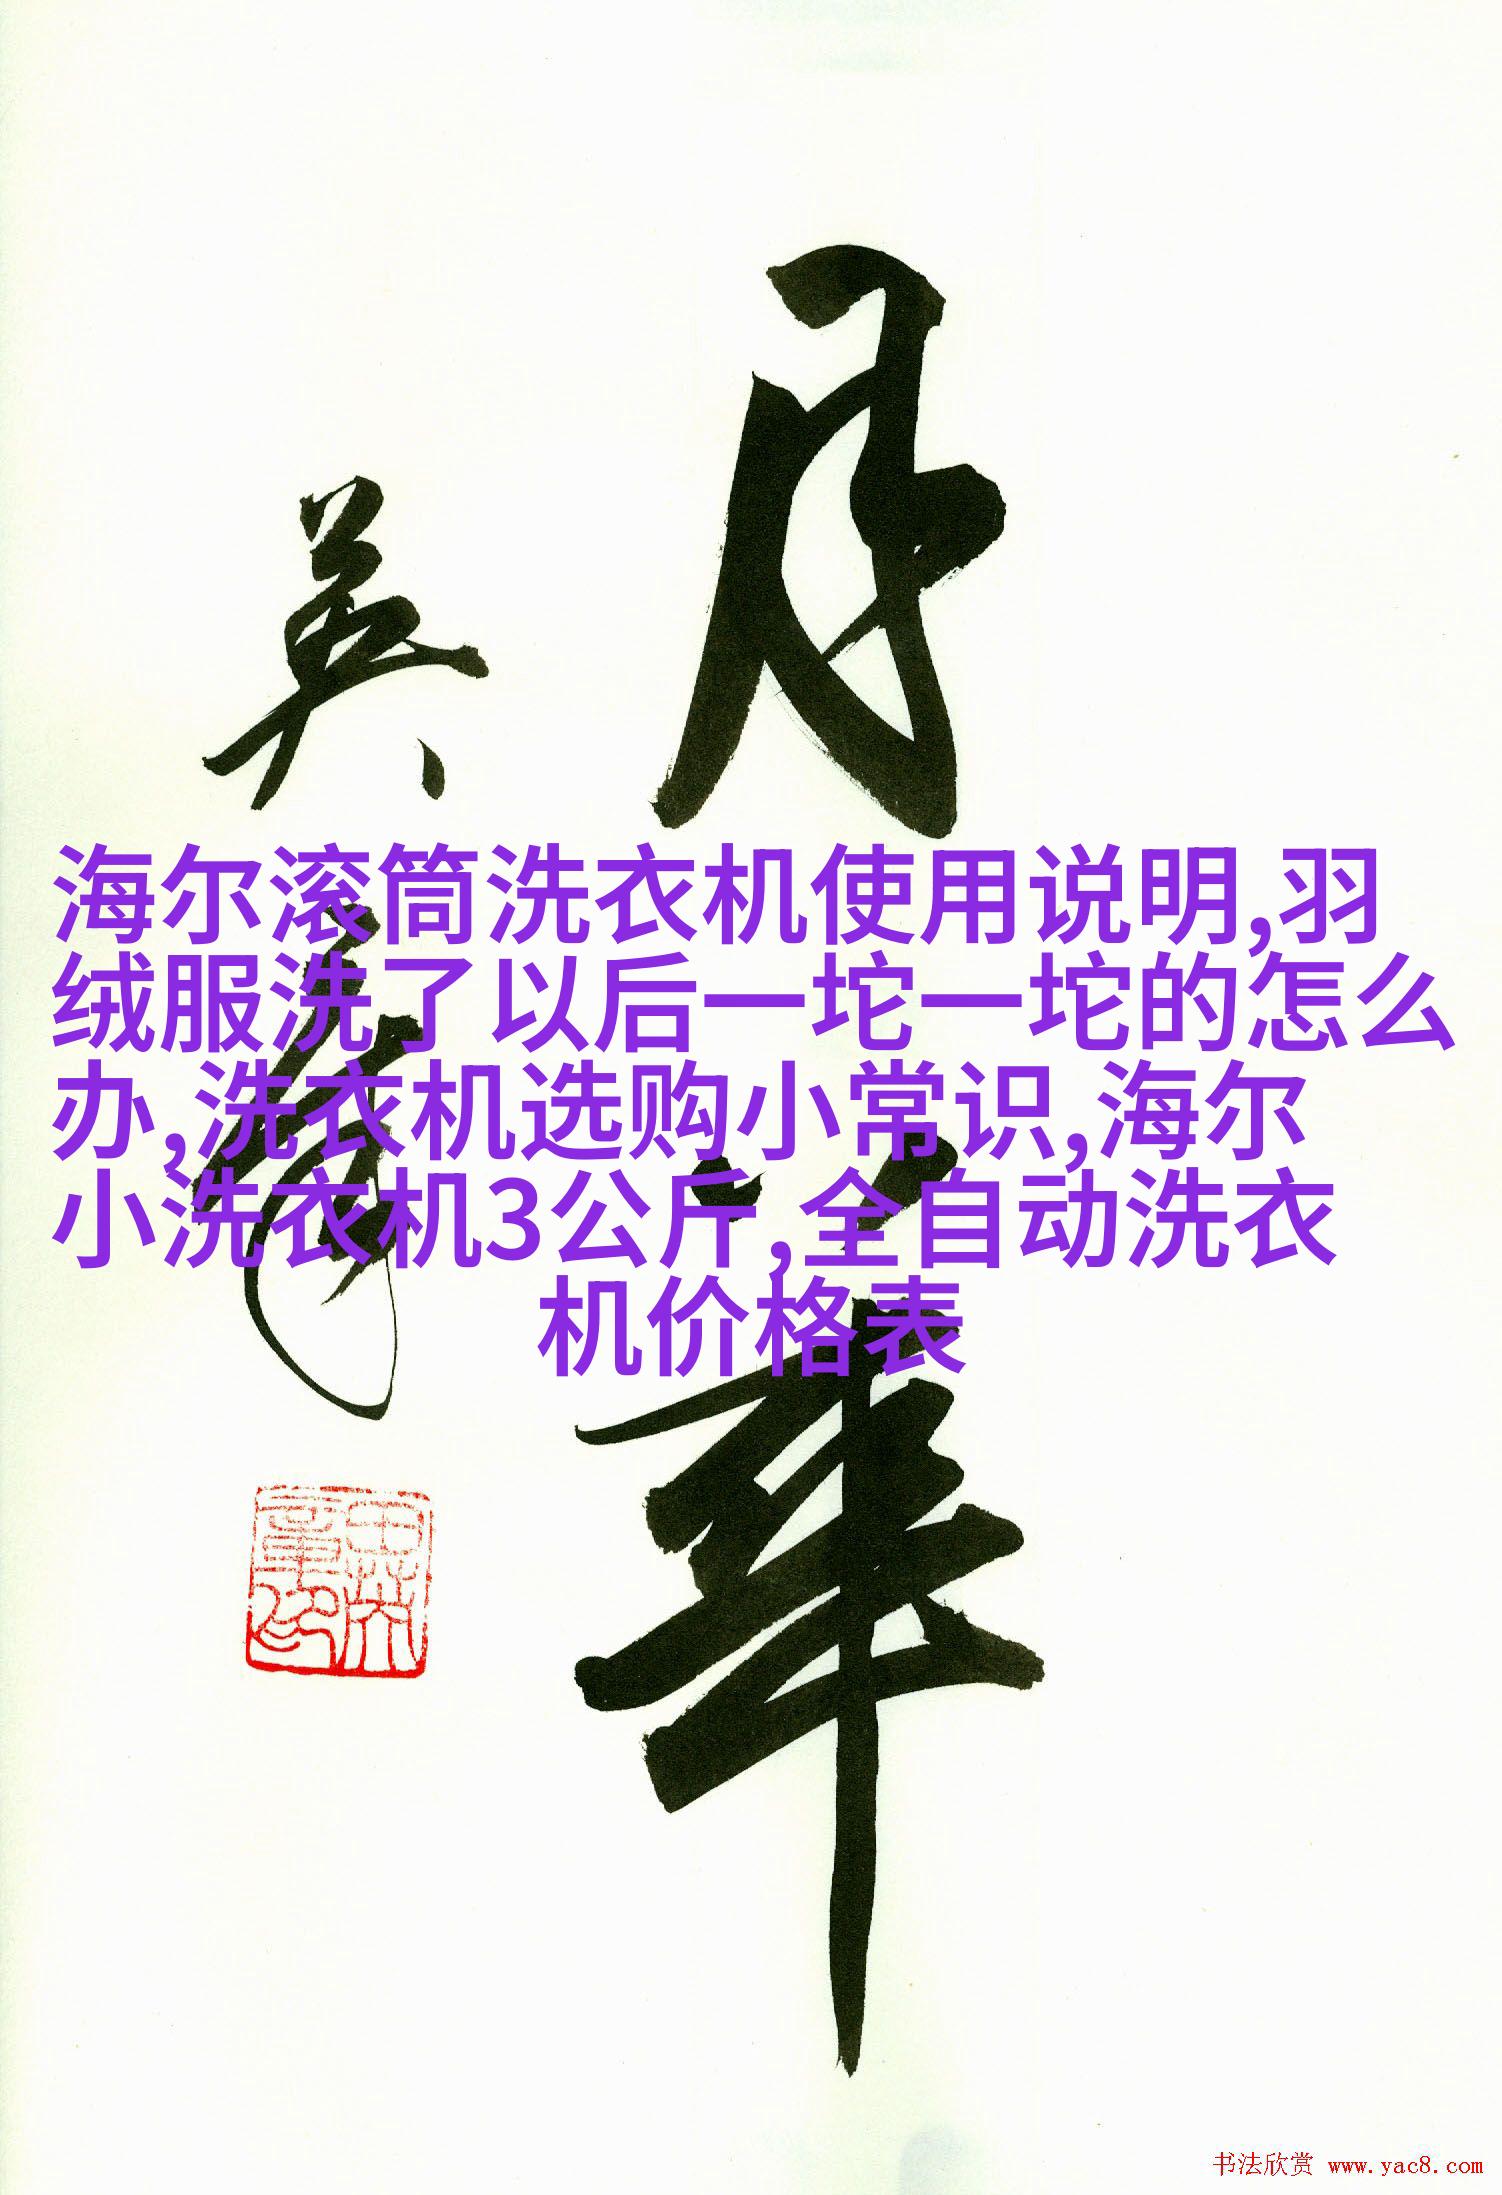 海尔滚筒洗衣机使用说明,羽
绒服洗了以后一坨一坨的怎么
办,洗衣机选购小常识,海尔
小洗衣机3公斤,全自动洗衣
机价格表
月华
书法欣赏 www.yac8.com